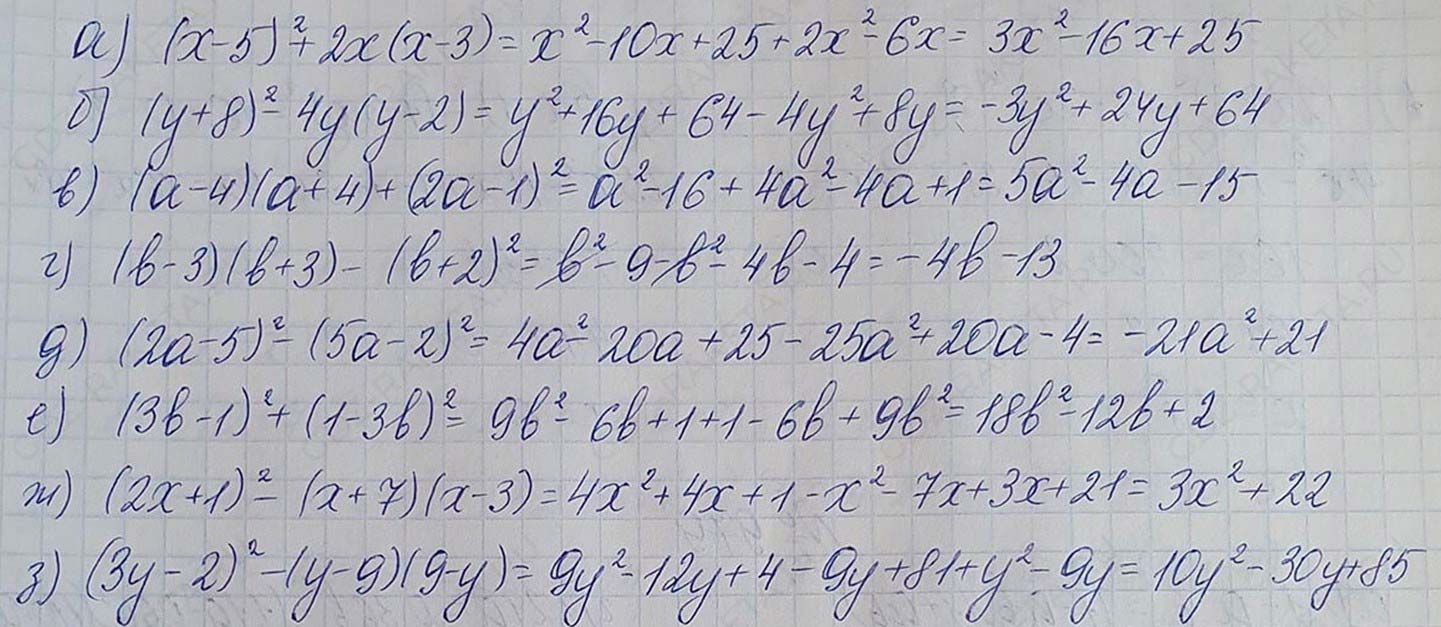 а) (x-5)²+2x(x-3)=x²-10x+25+2x²-6x=3x²-16x+25
б) (y+8)²-4y(y-2)=y²+16y+64-4y²+8y=-3y²+24y+64
в) (a-4)(a+4)+(2a-1)²=a²-16+4a²-4a+1=5a²-4a-15
г) (b-3)(b+3)-(b+2)²=b²-9-b²-4b-4=-4b-13
д) (2a-5)²-(5a-2)²=4a²-20a+25-25a²+20a-4=-21a²+21
е) (3b-1)²+(1-3b)²=9b²-6b+1+1-6b+9b²=18b²-12b+2
ж) (2x+1)²-(x+7)(x-3)=4x²+4x+1-x²-7x+3x+21=3x²+22
з) (3y-2)²-(y-9)(9-y)=9y²-12y+4-9y+81+y²-9y=10y²-30y+85